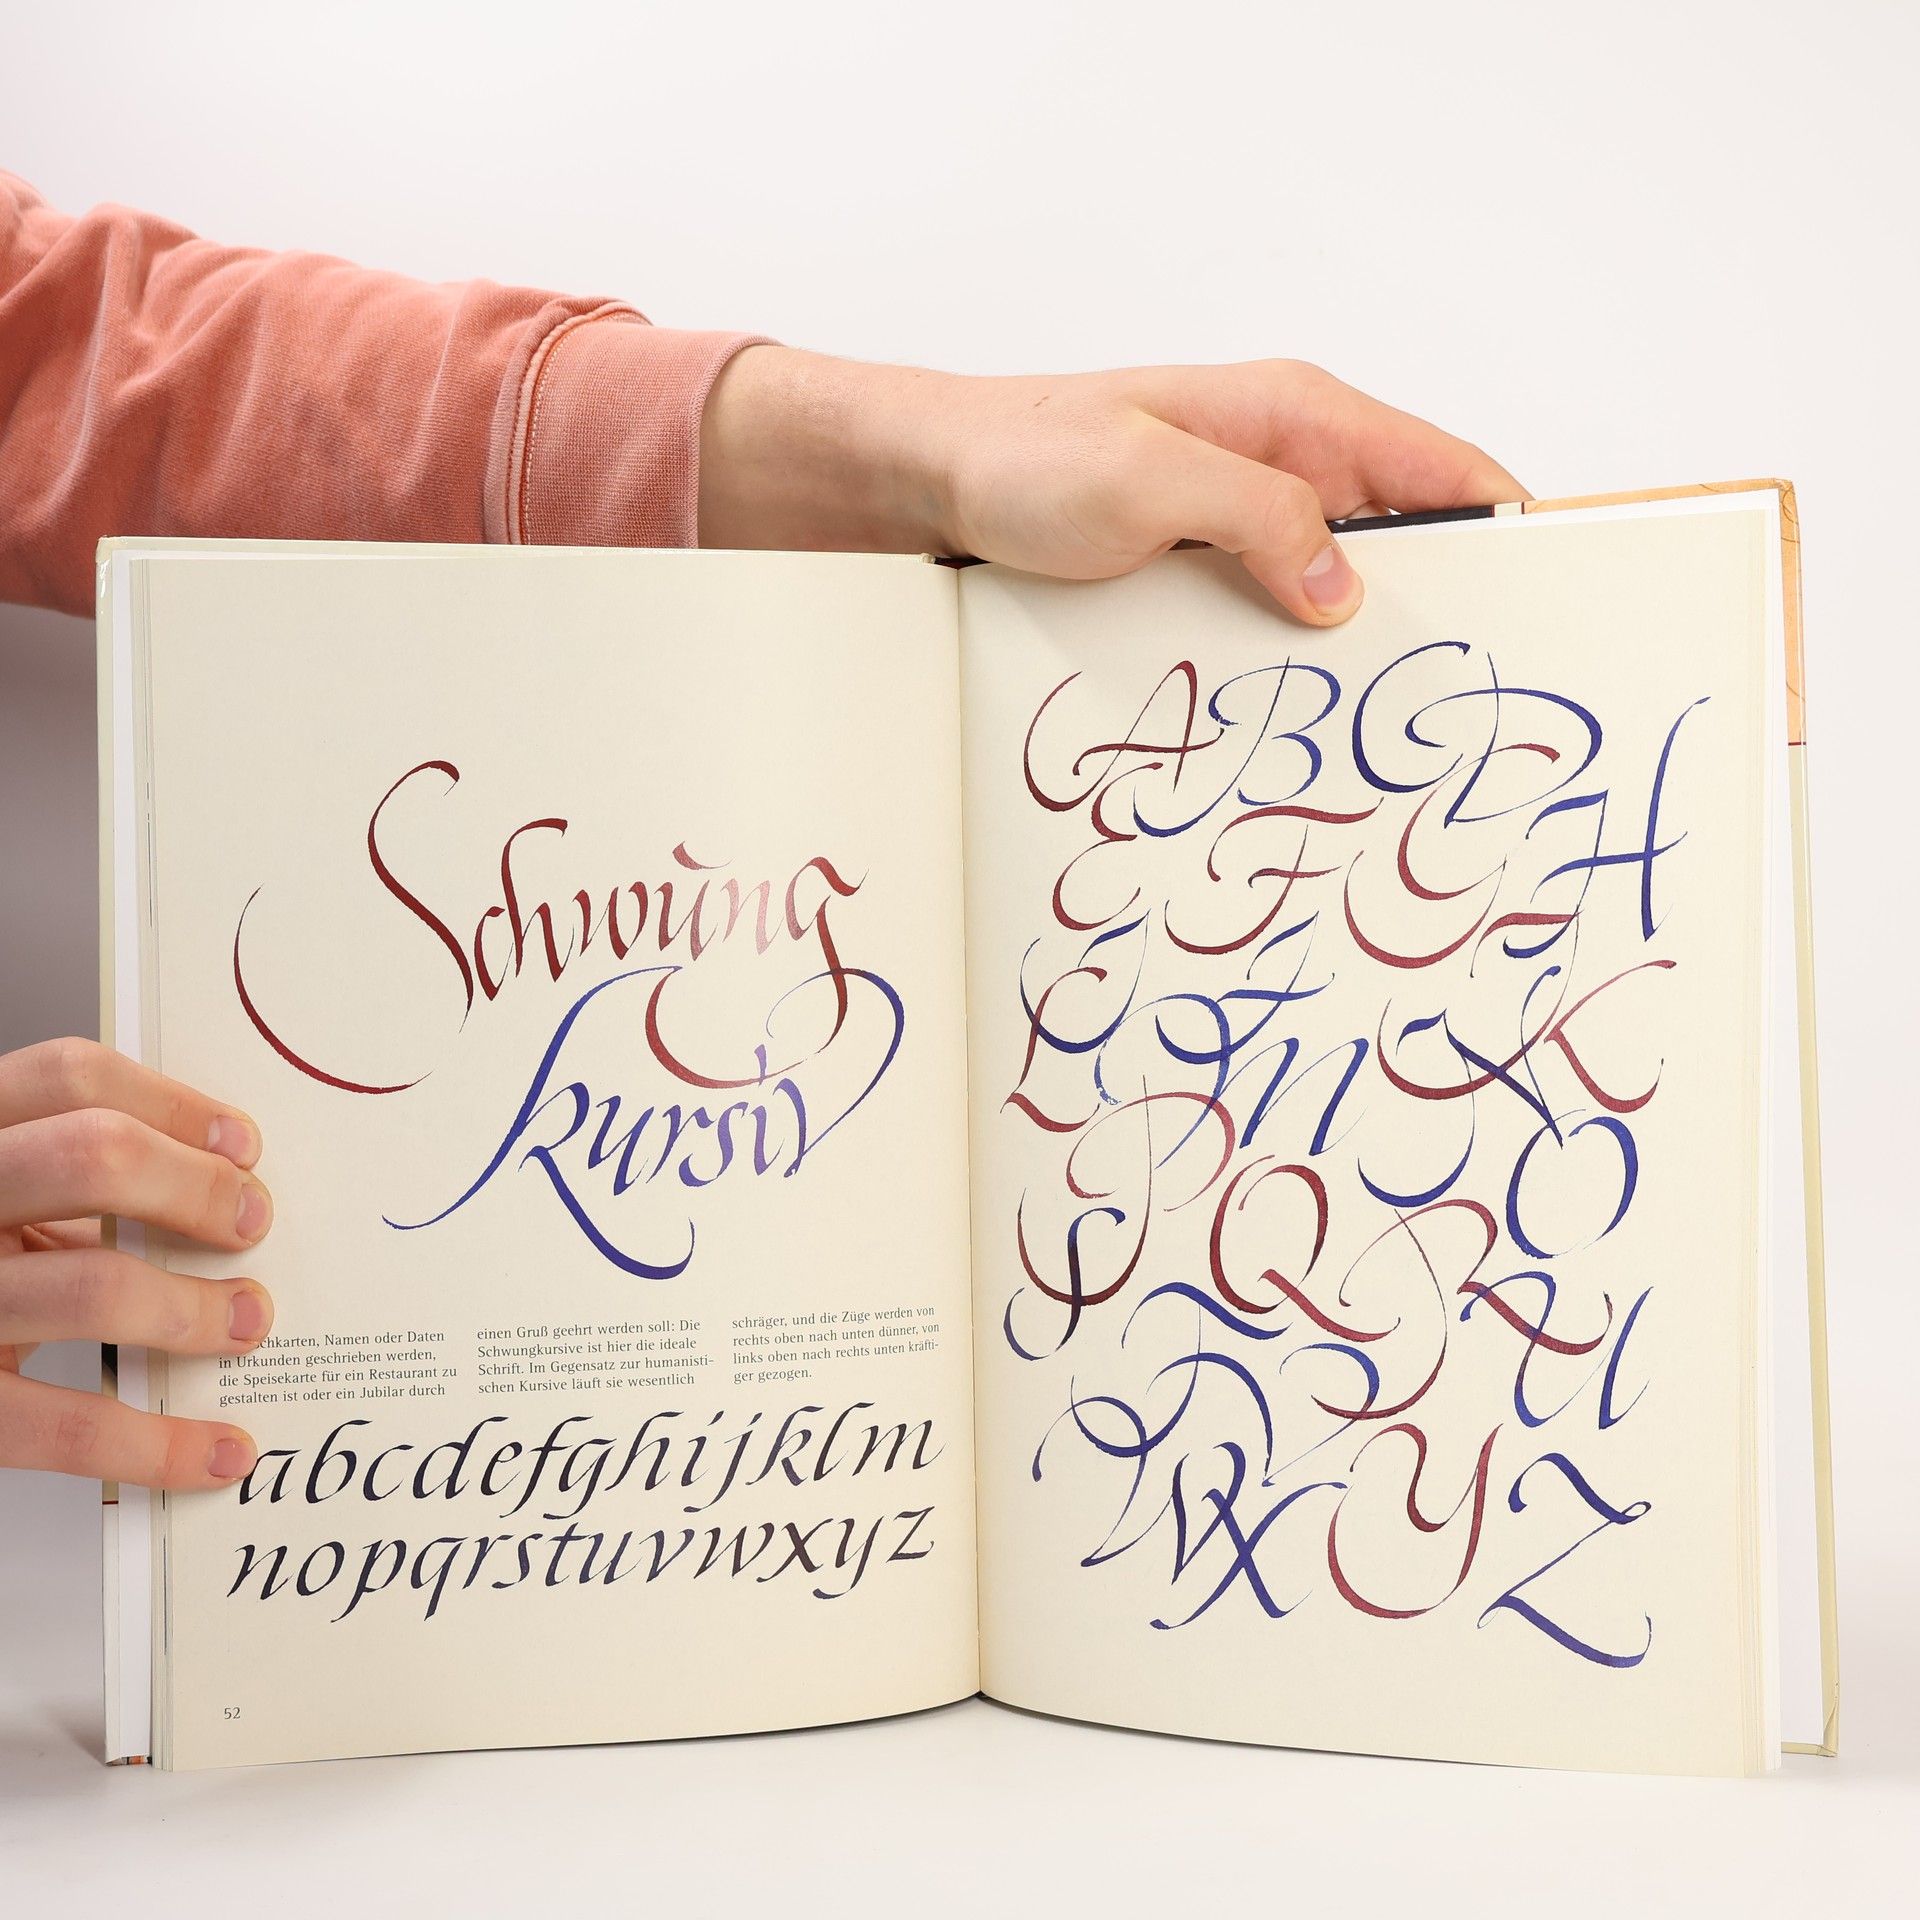 Schwung
kursiv
chkarten, Namen oder Daten
in Urkunden geschrieben werden,
die Speisekarte für ein Restaurant zu
gestalten ist oder ein Jubilar durch
einen Gruß geehrt werden soll: Die
Schwungkursive ist hier die ideale
Schrift. Im Gegensatz zur humanisti-
schen Kursive läuft sie wesentlich
schräger, und die Züge werden von
rechts oben nach unten dünner, von
links oben nach rechts unten kräfti-
ger gezogen.
abcdefghijklm
nopqrstuvwxyz
52
A B C D
E F G H
I J K
L M N O
P Q R
S T U
V W X Y Z